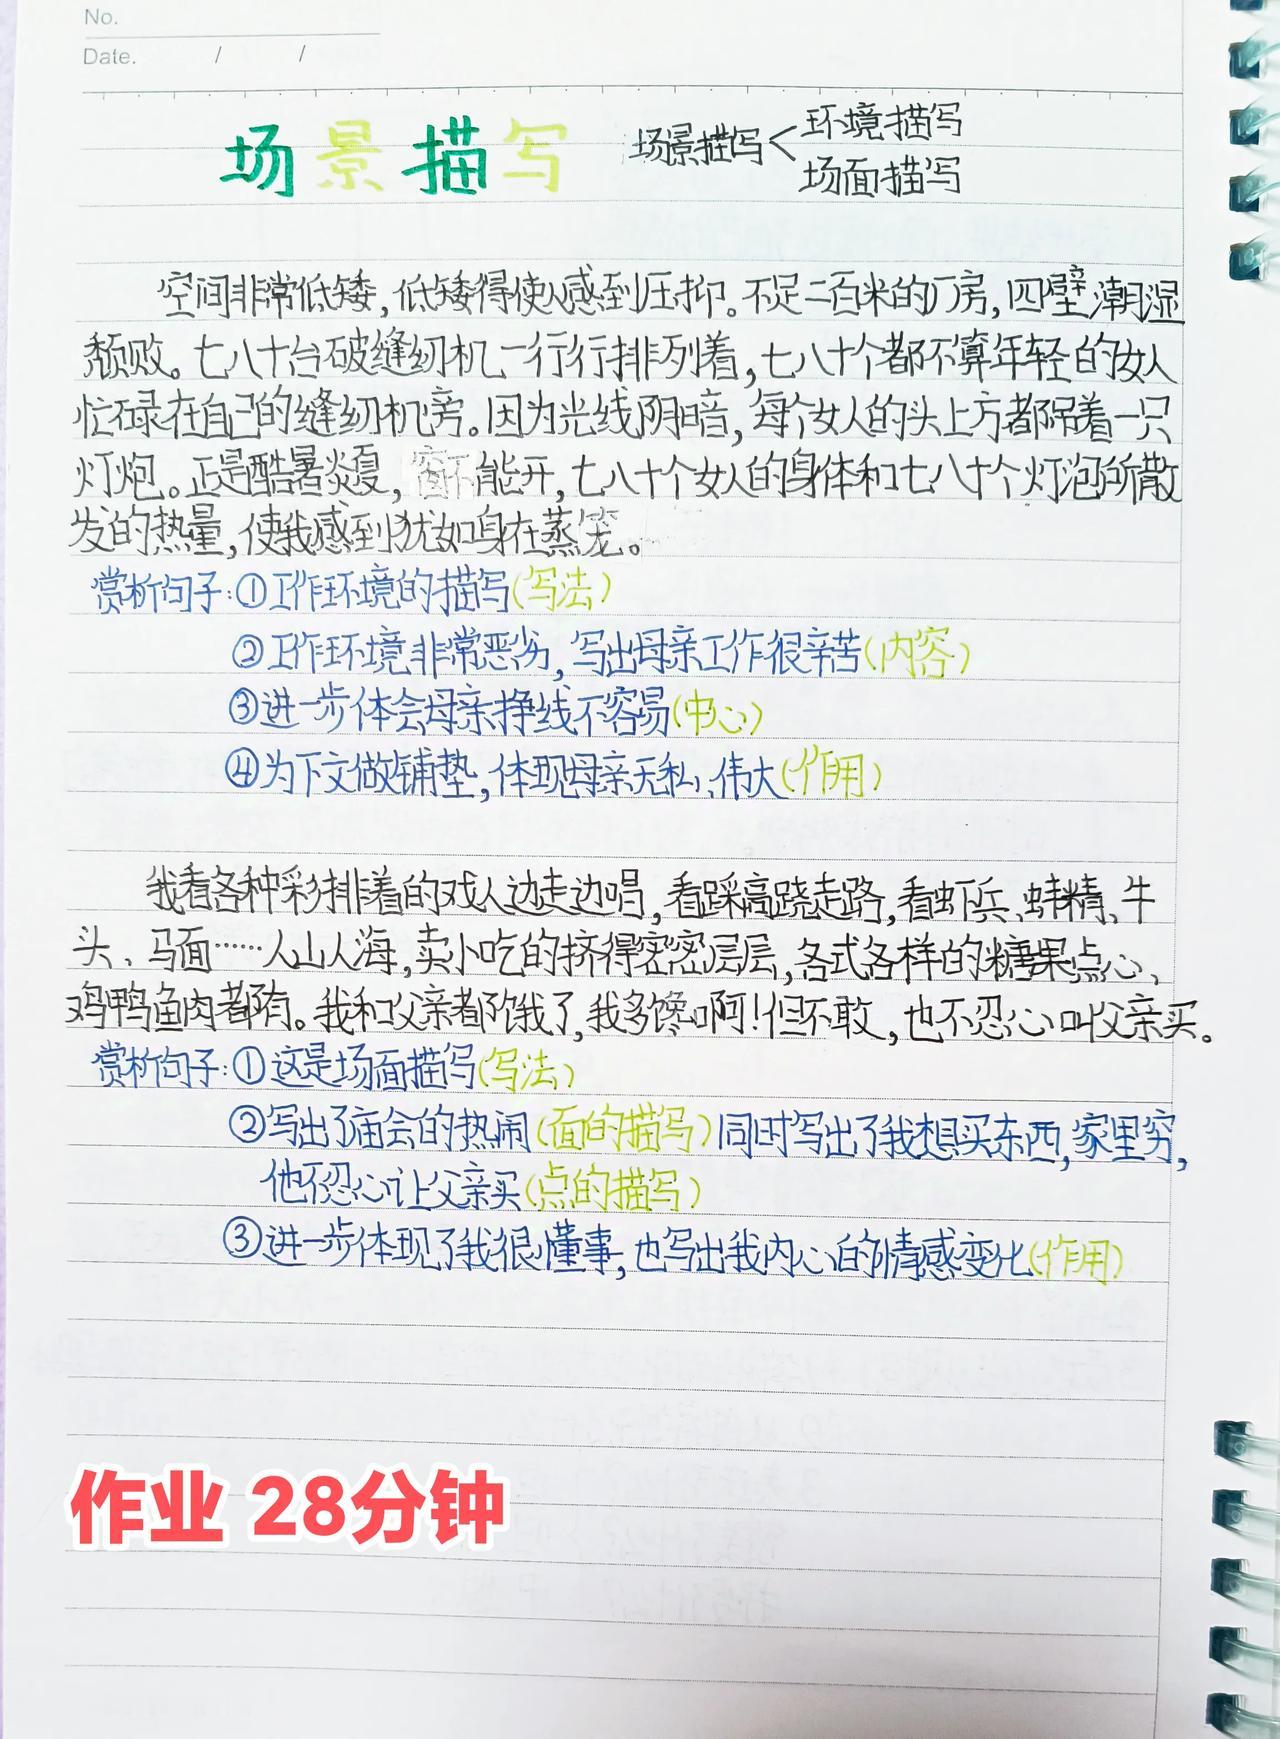 No.
Date. / /
场景描写 场景描写< 环境描写
场面描写
空间非常低矮,低矮得使人感到压抑。不足二百米的厂房,四壁潮湿
颓败。七八十台破缝纫机一行行排列着,七八十个都不算年轻的女人
忙碌在自己的缝纫机旁。因为光线阴暗,每个女人的头上方都吊着一只
灯炮。正是酷暑炎夏,窗不能开,七八十个女人的身体和七八十个灯泡所散
发的热量,使我感到犹如身在蒸笼。
赏析句子:①工作环境的描写(写法)
②工作环境非常恶劣,写出母亲工作很辛苦(内容)
③进一步体会母亲挣线不容易(中心)
④为下文做铺垫,体现母亲无私、伟大(作用)
我看各种彩排着的戏人边走边唱,看踩高跷走路,看虾兵、蚌精、牛
头、马面……人山人海,卖小吃的挤得密密层层,各式各样的糖果点心、
鸡鸭鱼肉都有。我和父亲都饿了,我多馋啊!但不敢,也不忍心叫父亲买。
赏析句子:①这是场面描写(写法)
②写出了庙会的热闹(面的描写)同时写出了我想买东西,家里穷,
他不忍心让父亲买(点的描写)
③进一步体现了我很懂事,也写出我内心的情感变化(作用)
作业 28分钟